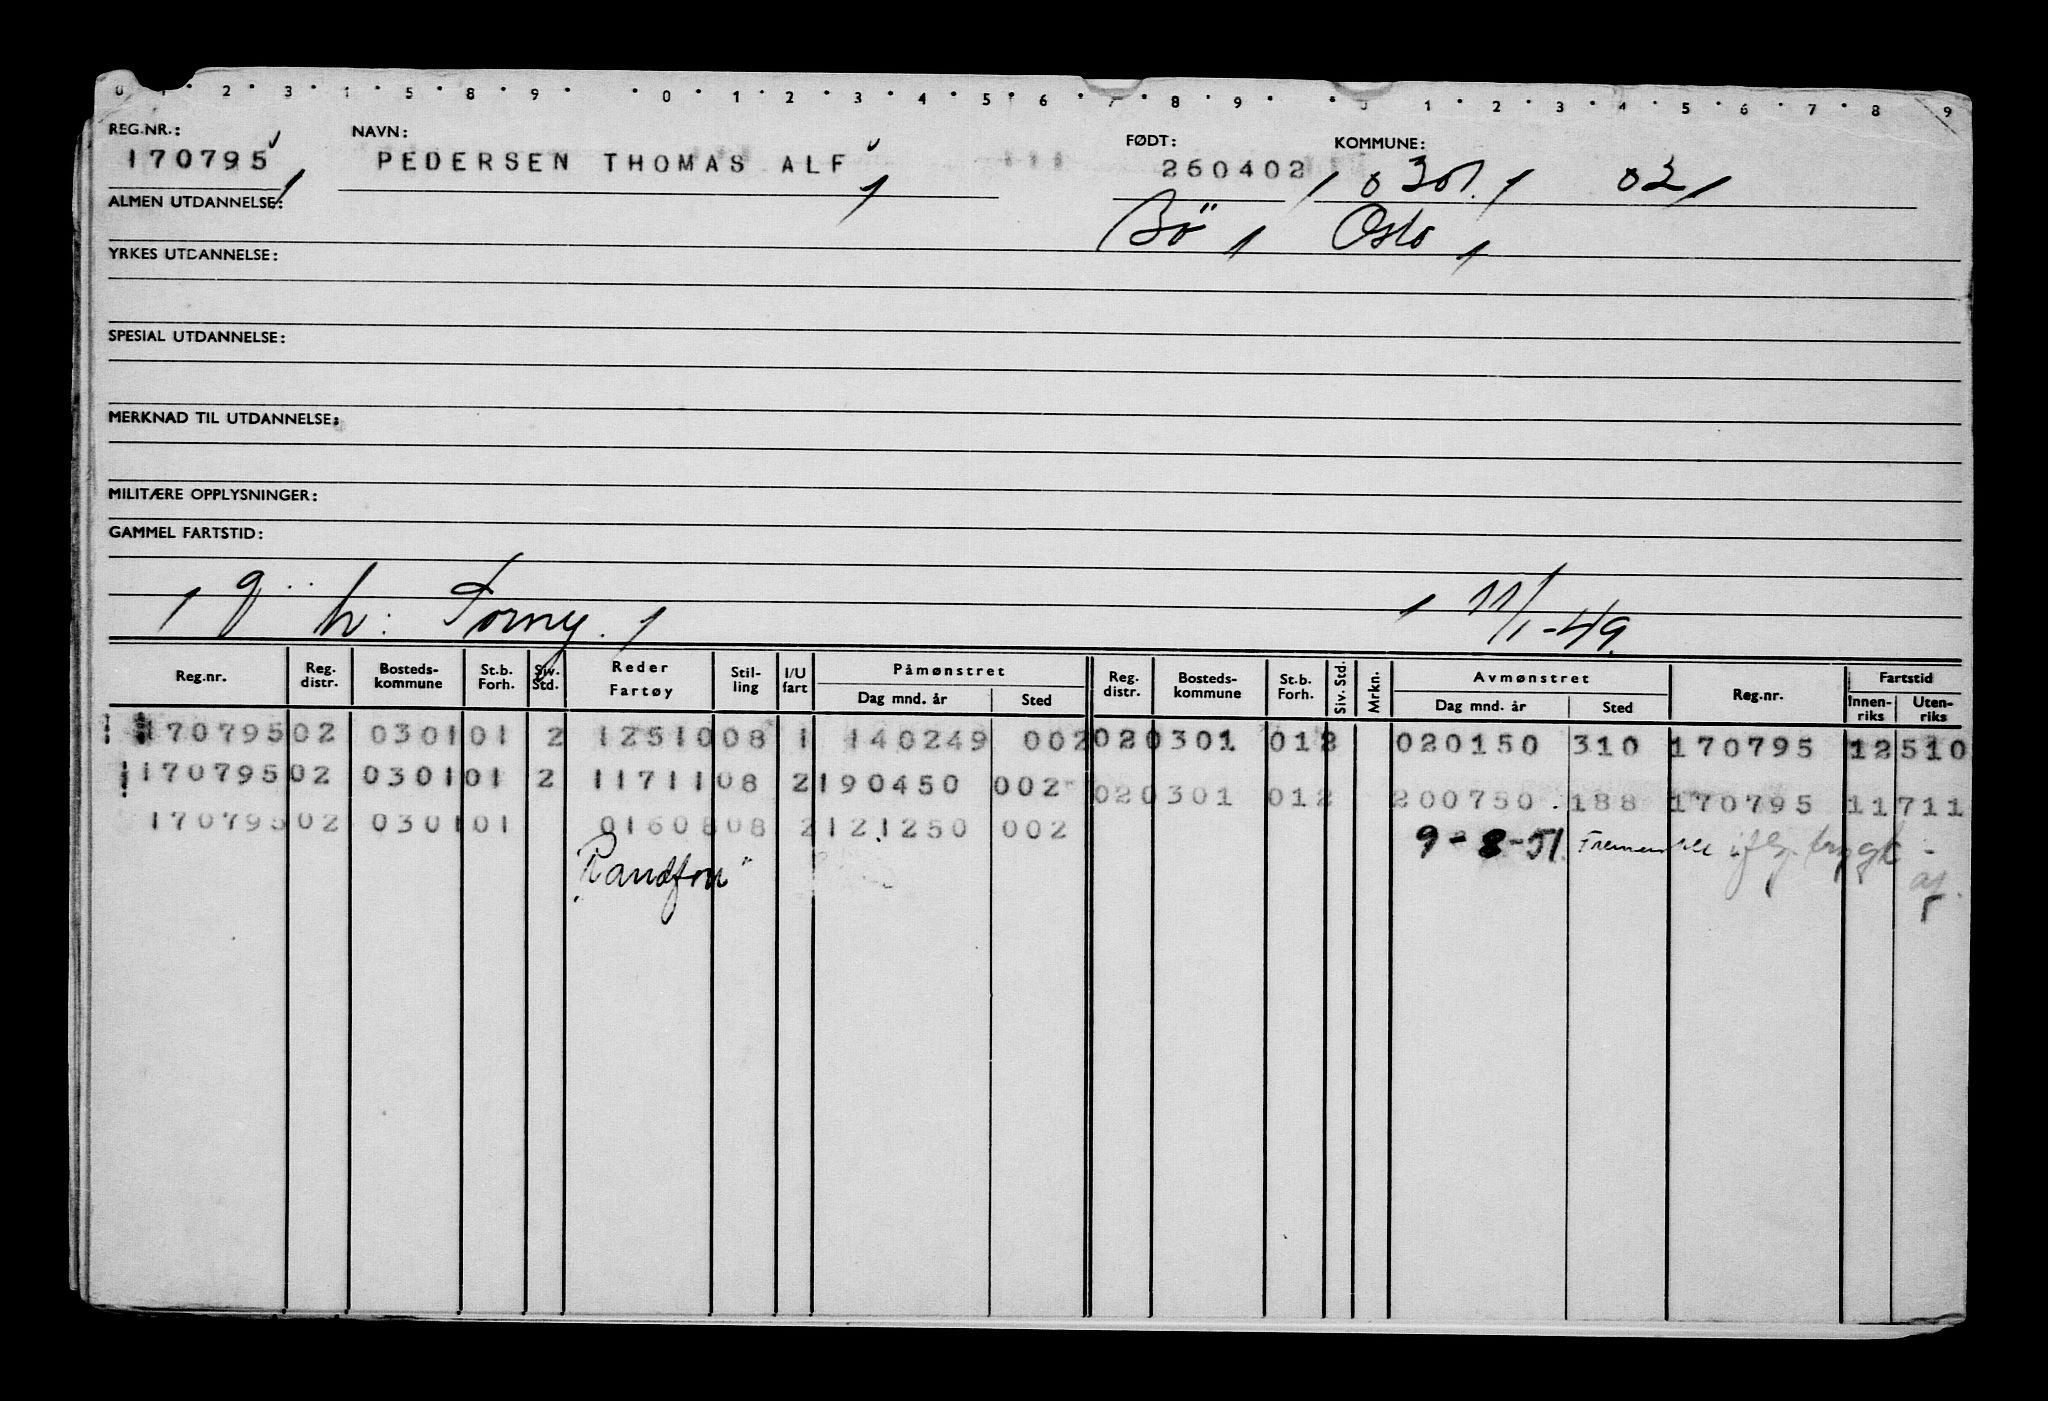 0 1 2 3 1 5 8 9 0 1 2 3 4 5 6 7 8 9 0 1 2 3 4 5 6 7 8 9
REG.NR.: NAVN: FØDT: KOMMUNE:
170795 PEDERSEN THOMAS ALF 260402 0301 02
ALMEN UTDANNELSE: Bö Oslo
YRKES UTDANNELSE:
SPESIAL UTDANNELSE:
MERKNAD TIL UTDANNELSE:
MILITÆRE OPPLYSNINGER:
GAMMEL FARTSTID:
g. h: Torny. 11/1-49.
Reg.nr. Reg. distr. Bosteds-kommune St.b. Forh. Siv. Std. Reder Fartøy Stil-ling I/U fart Påmønstret Dag mnd. år Sted Reg. distr. Bosteds-kommune St.b. Forh. Siv. Std. Mrkn. Avmønstret Dag mnd. år Sted Reg.nr. Fartstid Innen-riks Uten-riks
170795 02 0301 01 2 12510 08 1 140249 002 02 0301 01 2 020150 310 170795 12510
170795 02 0301 01 2 11711 08 2 190450 002 02 0301 01 2 200750 188 170795 11711
170795 02 0301 01 01608 08 2 121250 002 9-8-51
"Randfou"